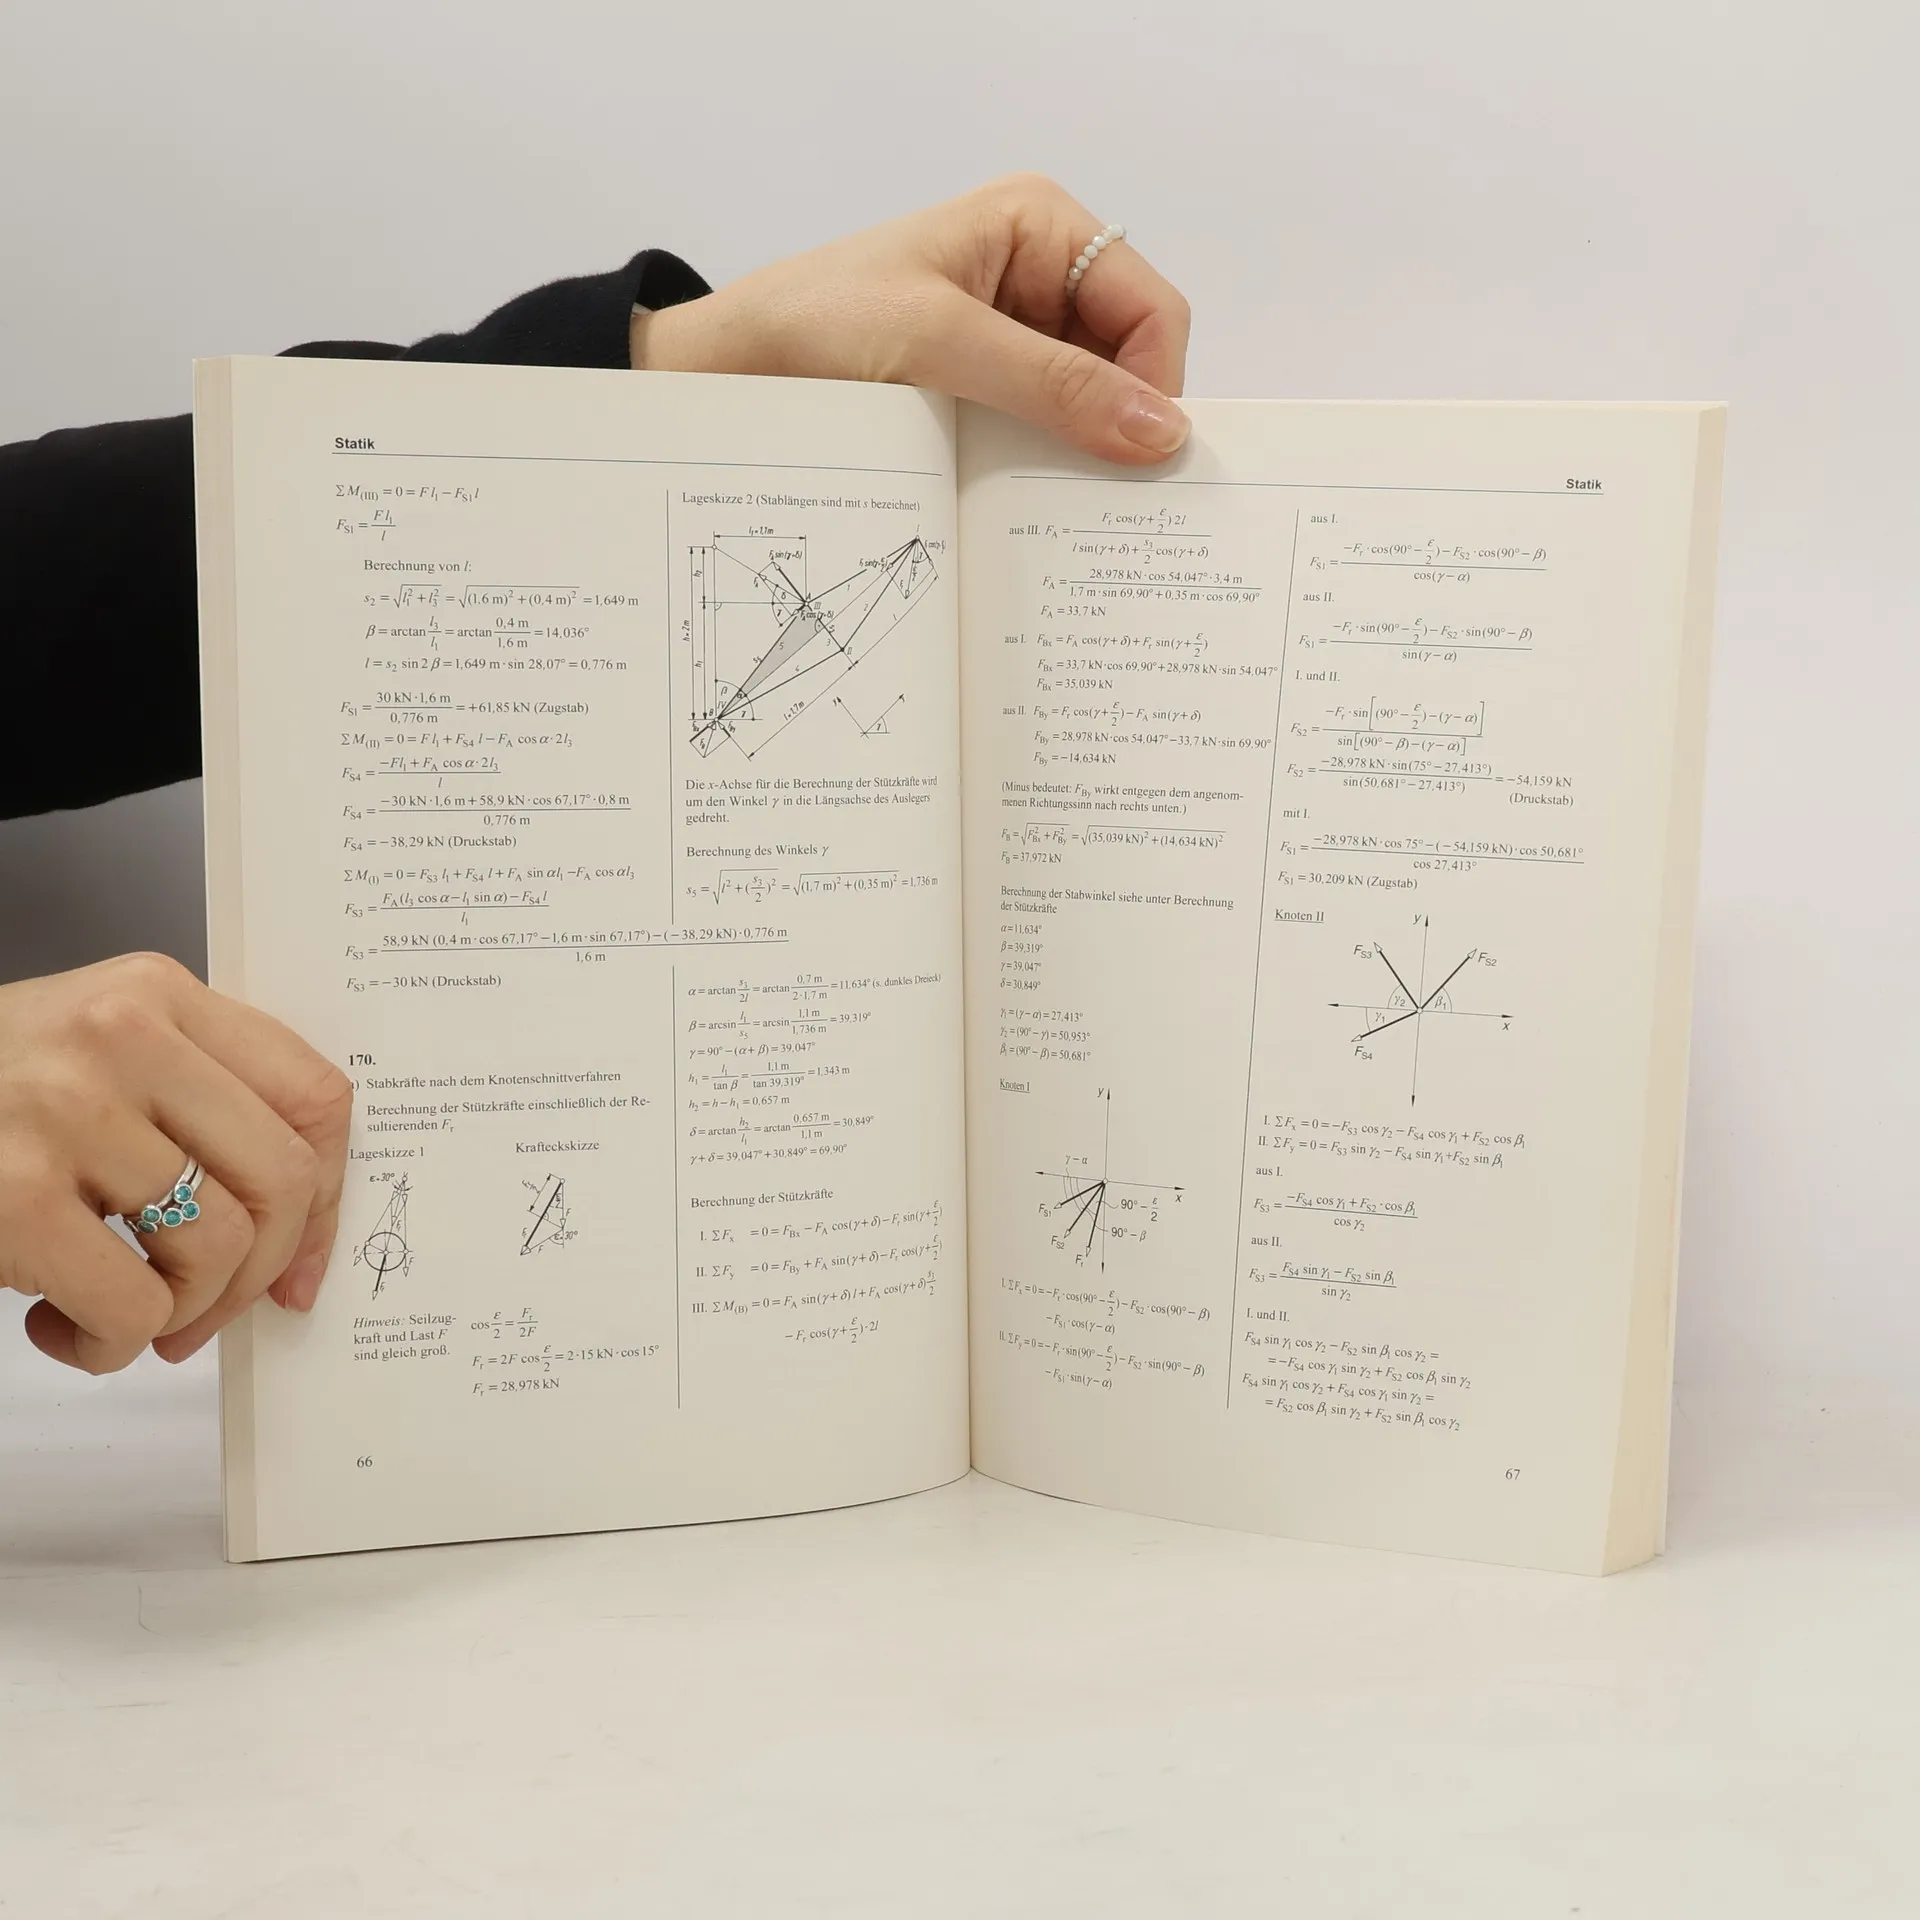 Statik
ΣM(III) = 0 = F l₁ − F_S1 l
F_S1 = F l₁ / l
Berechnung von l:
s₂ = √(l₁² + l₃²) = √((1,6 m)² + (0,4 m)²) = 1,649 m
β = arctan l₃/l₁ = arctan 0,4 m / 1,6 m = 14,036°
l = s₂ sin 2β = 1,649 m · sin 28,07° = 0,776 m
F_S1 = 30 kN · 1,6 m / 0,776 m = +61,85 kN (Zugstab)
ΣM(II) = 0 = F l₁ + F_S4 l − F_A cos α · 2l₃
F_S4 = −Fl₁ + F_A cos α · 2l₃ / l
F_S4 = −30 kN · 1,6 m + 58,9 kN · cos 67,17° · 0,8 m / 0,776 m
F_S4 = −38,29 kN (Druckstab)
ΣM(I) = 0 = F_S3 l₁ + F_S4 l + F_A sin αl₁ − F_A cos αl₃
F_S3 = F_A (l₃ cos α − l₁ sin α) − F_S4 l / l₁
F_S3 = 58,9 kN (0,4 m · cos 67,17° − 1,6 m · sin 67,17°) − (−38,29 kN) · 0,776 m / 1,6 m
F_S3 = −30 kN (Druckstab)
170.
) Stabkräfte nach dem Knotenschnittverfahren
Berechnung der Stützkräfte einschließlich der Re-
sultierenden F_r
Lageskizze 1
Krafteckskizze
ε=30°
F
F
F_r
F_r
F
F
ε=30°
Hinweis: Seilzug-
kraft und Last F
sind gleich groß.
cos ε/2 = F_r / 2F
F_r = 2F cos ε/2 = 2 · 15 kN · cos 15°
F_r = 28,978 kN
66
Lageskizze 2 (Stablängen sind mit s bezeichnet)
l₁=1,1m
F_A sin(γ+δ)
h₂
h=2m
h₁
A
III
δ
γ
1
2
3
4
5
s₅
I
II
l
l=1,7m
β
α
IV
B
γ
F_Bx
F_By
F_B
γ
Die x-Achse für die Berechnung der Stützkräfte wird
um den Winkel γ in die Längsachse des Auslegers
gedreht.
Berechnung des Winkels γ
s₅ = √(l² + (s₃/2)²) = √((1,7 m)² + (0,35 m)²) = 1,736 m
α = arctan s₃/2l = arctan 0,7 m / 2·1,7 m = 11,634° (s. dunkles Dreieck)
β = arcsin l₁/s₅ = arcsin 1,1 m / 1,736 m = 39,319°
γ = 90° − (α + β) = 39,047°
h₁ = l₁ / tan β = 1,1 m / tan 39,319° = 1,343 m
h₂ = h − h₁ = 0,657 m
δ = arctan h₂/l₁ = arctan 0,657 m / 1,1 m = 30,849°
γ + δ = 39,047° + 30,849° = 69,90°
Berechnung der Stützkräfte
I. ΣF_x = 0 = F_Bx − F_A cos(γ+δ) − F_r sin(γ+ε/2)
II. ΣF_y = 0 = F_By + F_A sin(γ+δ) − F_r cos(γ+ε/2)
III. ΣM(B) = 0 = F_A sin(γ+δ) l + F_A cos(γ+δ) s₃/2
− F_r cos(γ+ε/2) · 2l
Statik
aus III. F_A = F_r cos(γ+ε/2) 2l / l sin(γ+δ) + s₃/2 cos(γ+δ)
F_A = 28,978 kN · cos 54,047° · 3,4 m / 1,7 m · sin 69,90° + 0,35 m · cos 69,90°
F_A = 33,7 kN
aus I. F_Bx = F_A cos(γ+δ) + F_r sin(γ+ε/2)
F_Bx = 33,7 kN · cos 69,90° + 28,978 kN · sin 54,047°
F_Bx = 35,039 kN
aus II. F_By = F_r cos(γ+ε/2) − F_A sin(γ+δ)
F_By = 28,978 kN · cos 54,047° − 33,7 kN · sin 69,90°
F_By = −14,634 kN
(Minus bedeutet: F_By wirkt entgegen dem angenom-
menen Richtungssinn nach rechts unten.)
F_B = √(F_Bx² + F_By²) = √((35,039 kN)² + (14,634 kN)²)
F_B = 37,972 kN
Berechnung der Stabwinkel siehe unter Berechnung
der Stützkräfte
α = 11,634°
β = 39,319°
γ = 39,047°
δ = 30,849°
γ₁ = (γ − α) = 27,413°
γ₂ = (90° − γ) = 50,953°
β₁ = (90° − β) = 50,681°
Knoten I
y
γ−α
x
F_S1
90° − ε/2
F_S2
90° − β
F_r
I. ΣF_x = 0 = −F_r · cos(90° − ε/2) − F_S2 · cos(90° − β)
− F_S1 · cos(γ − α)
II. ΣF_y = 0 = −F_r · sin(90° − ε/2) − F_S2 · sin(90° − β)
− F_S1 · sin(γ − α)
aus I.
F_S1 = −F_r · cos(90° − ε/2) − F_S2 · cos(90° − β) / cos(γ − α)
aus II.
F_S1 = −F_r · sin(90° − ε/2) − F_S2 · sin(90° − β) / sin(γ − α)
I. und II.
F_S2 = −F_r · sin[(90° − ε/2) − (γ − α)] / sin[(90° − β) − (γ − α)]
F_S2 = −28,978 kN · sin(75° − 27,413°) / sin(50,681° − 27,413°) = −54,159 kN
(Druckstab)
mit I.
F_S1 = −28,978 kN · cos 75° − (−54,159 kN) · cos 50,681° / cos 27,413°
F_S1 = 30,209 kN (Zugstab)
Knoten II
y
F_S3
F_S2
γ₂
β₁
γ₁
x
F_S4
I. ΣF_x = 0 = −F_S3 cos γ₂ − F_S4 cos γ₁ + F_S2 cos β₁
II. ΣF_y = 0 = F_S3 sin γ₂ − F_S4 sin γ₁ + F_S2 sin β₁
aus I.
F_S3 = −F_S4 cos γ₁ + F_S2 · cos β₁ / cos γ₂
aus II.
F_S3 = F_S4 sin γ₁ − F_S2 sin β₁ / sin γ₂
I. und II.
F_S4 sin γ₁ cos γ₂ − F_S2 sin β₁ cos γ₂ =
= −F_S4 cos γ₁ sin γ₂ + F_S2 cos β₁ sin γ₂
F_S4 sin γ₁ cos γ₂ + F_S4 cos γ₁ sin γ₂ =
= F_S2 cos β₁ sin γ₂ + F_S2 sin β₁ cos γ₂
67